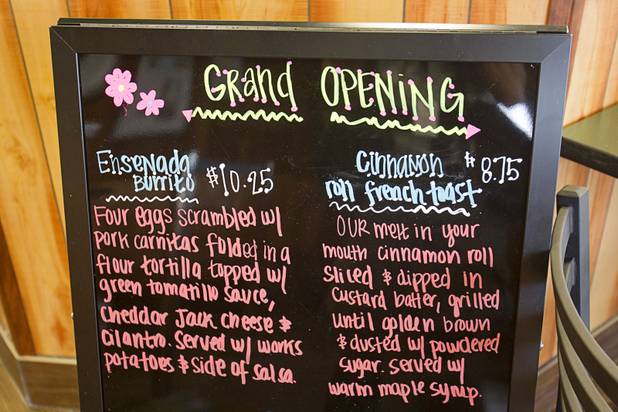 Grand OPENING
Ensenada
Burrito $10.25
Four eggs scrambled w/
pork carnitas folded in a
flour tortilla topped w/
green tomatillo sauce,
cheddar Jack cheese &
cilantro. Served w/ works
potatoes & side of salsa.
Cinnamon $8.75
roll french toast
OUR melt in your
mouth cinnamon roll
sliced & dipped in
custard batter, grilled
until golden brown
& dusted w/ powdered
sugar. served w/
warm maple syrup.